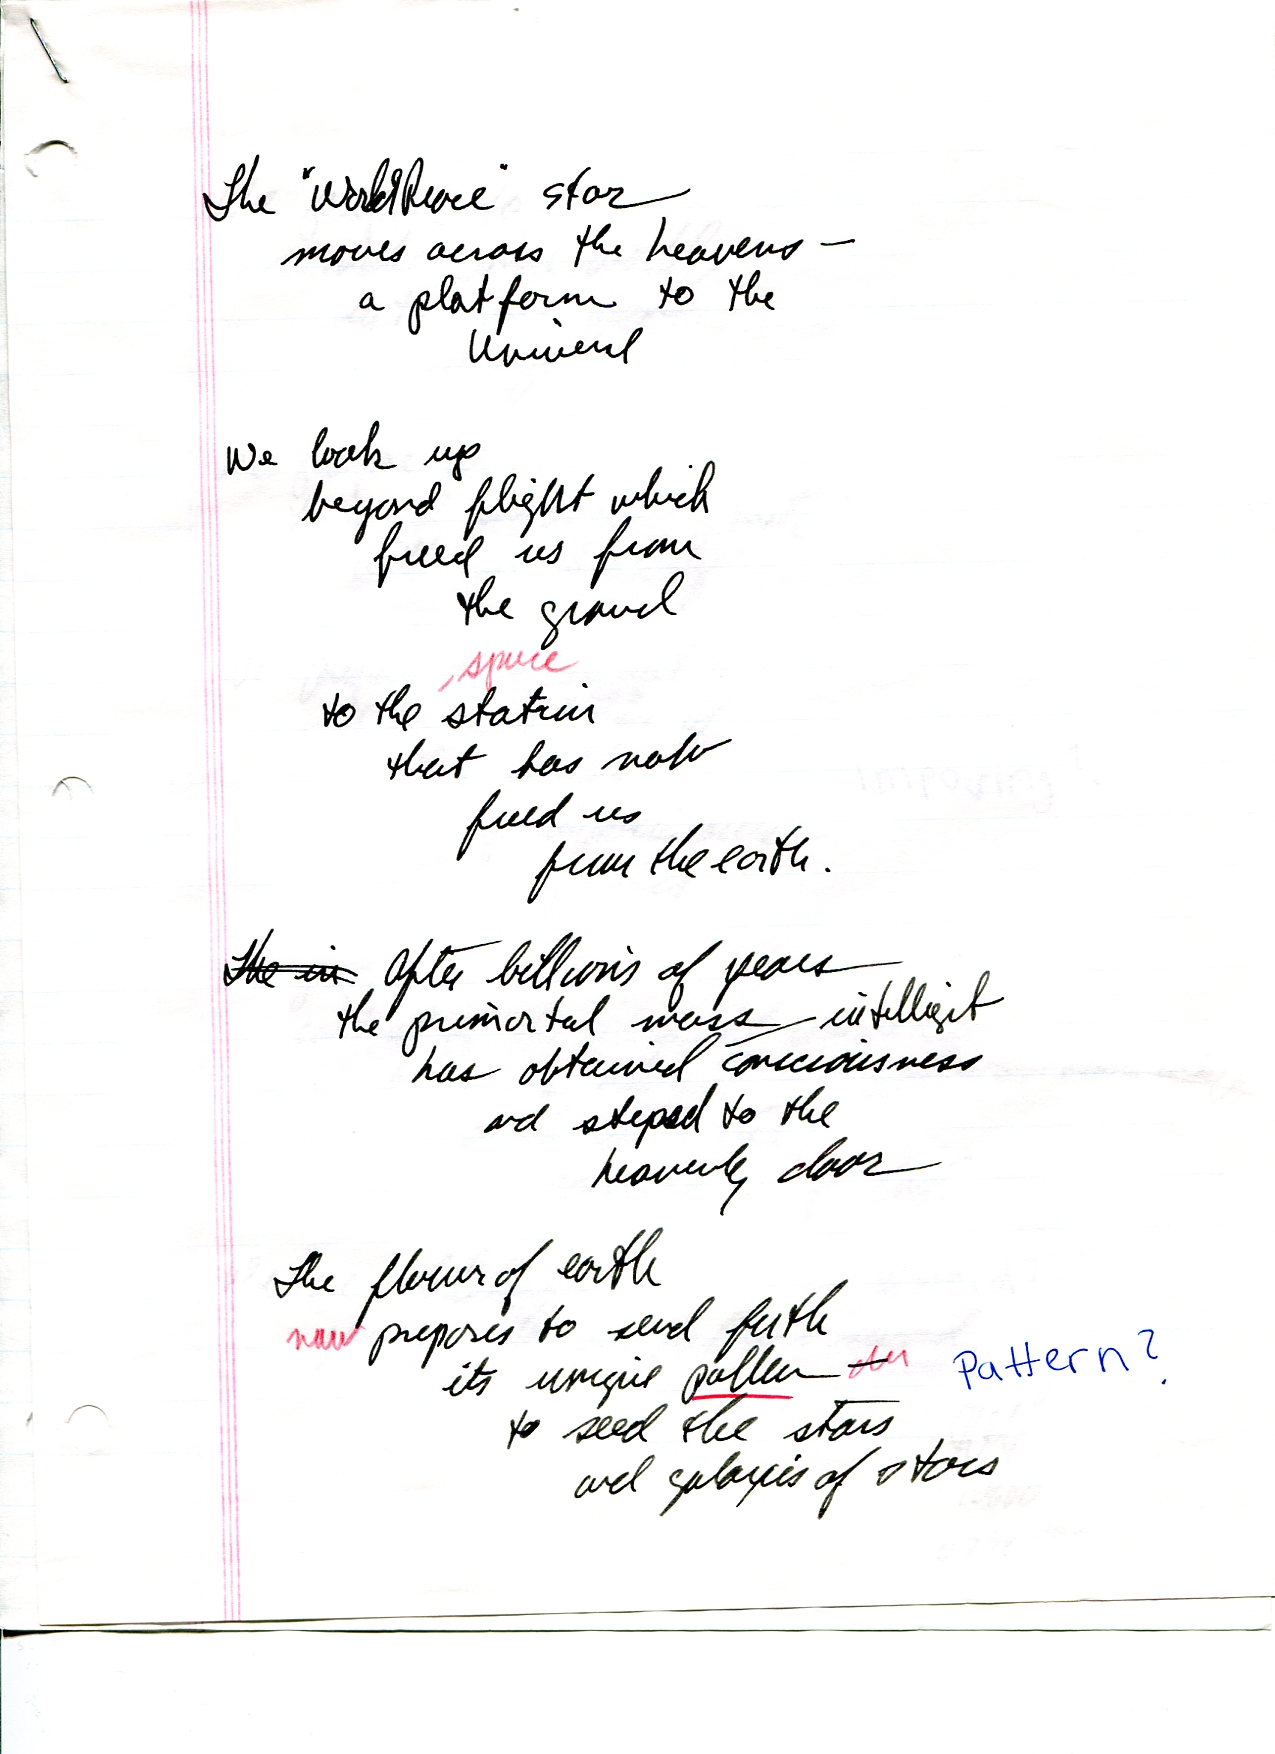 The "World Peace" star
moves across the heavens —
a platform to the
Univers
We look up
beyond flight which
freed us from
the ground
space
to the station
that has now
freed us
from the earth.
The in After billions of years
the primortal mass intelligt
has obtained consciousness
and steped to the
heavenly door
The flower of earth
now prepares to send forth
its unique pollen
Pattern?
to seed the stars
and galaxies of stars